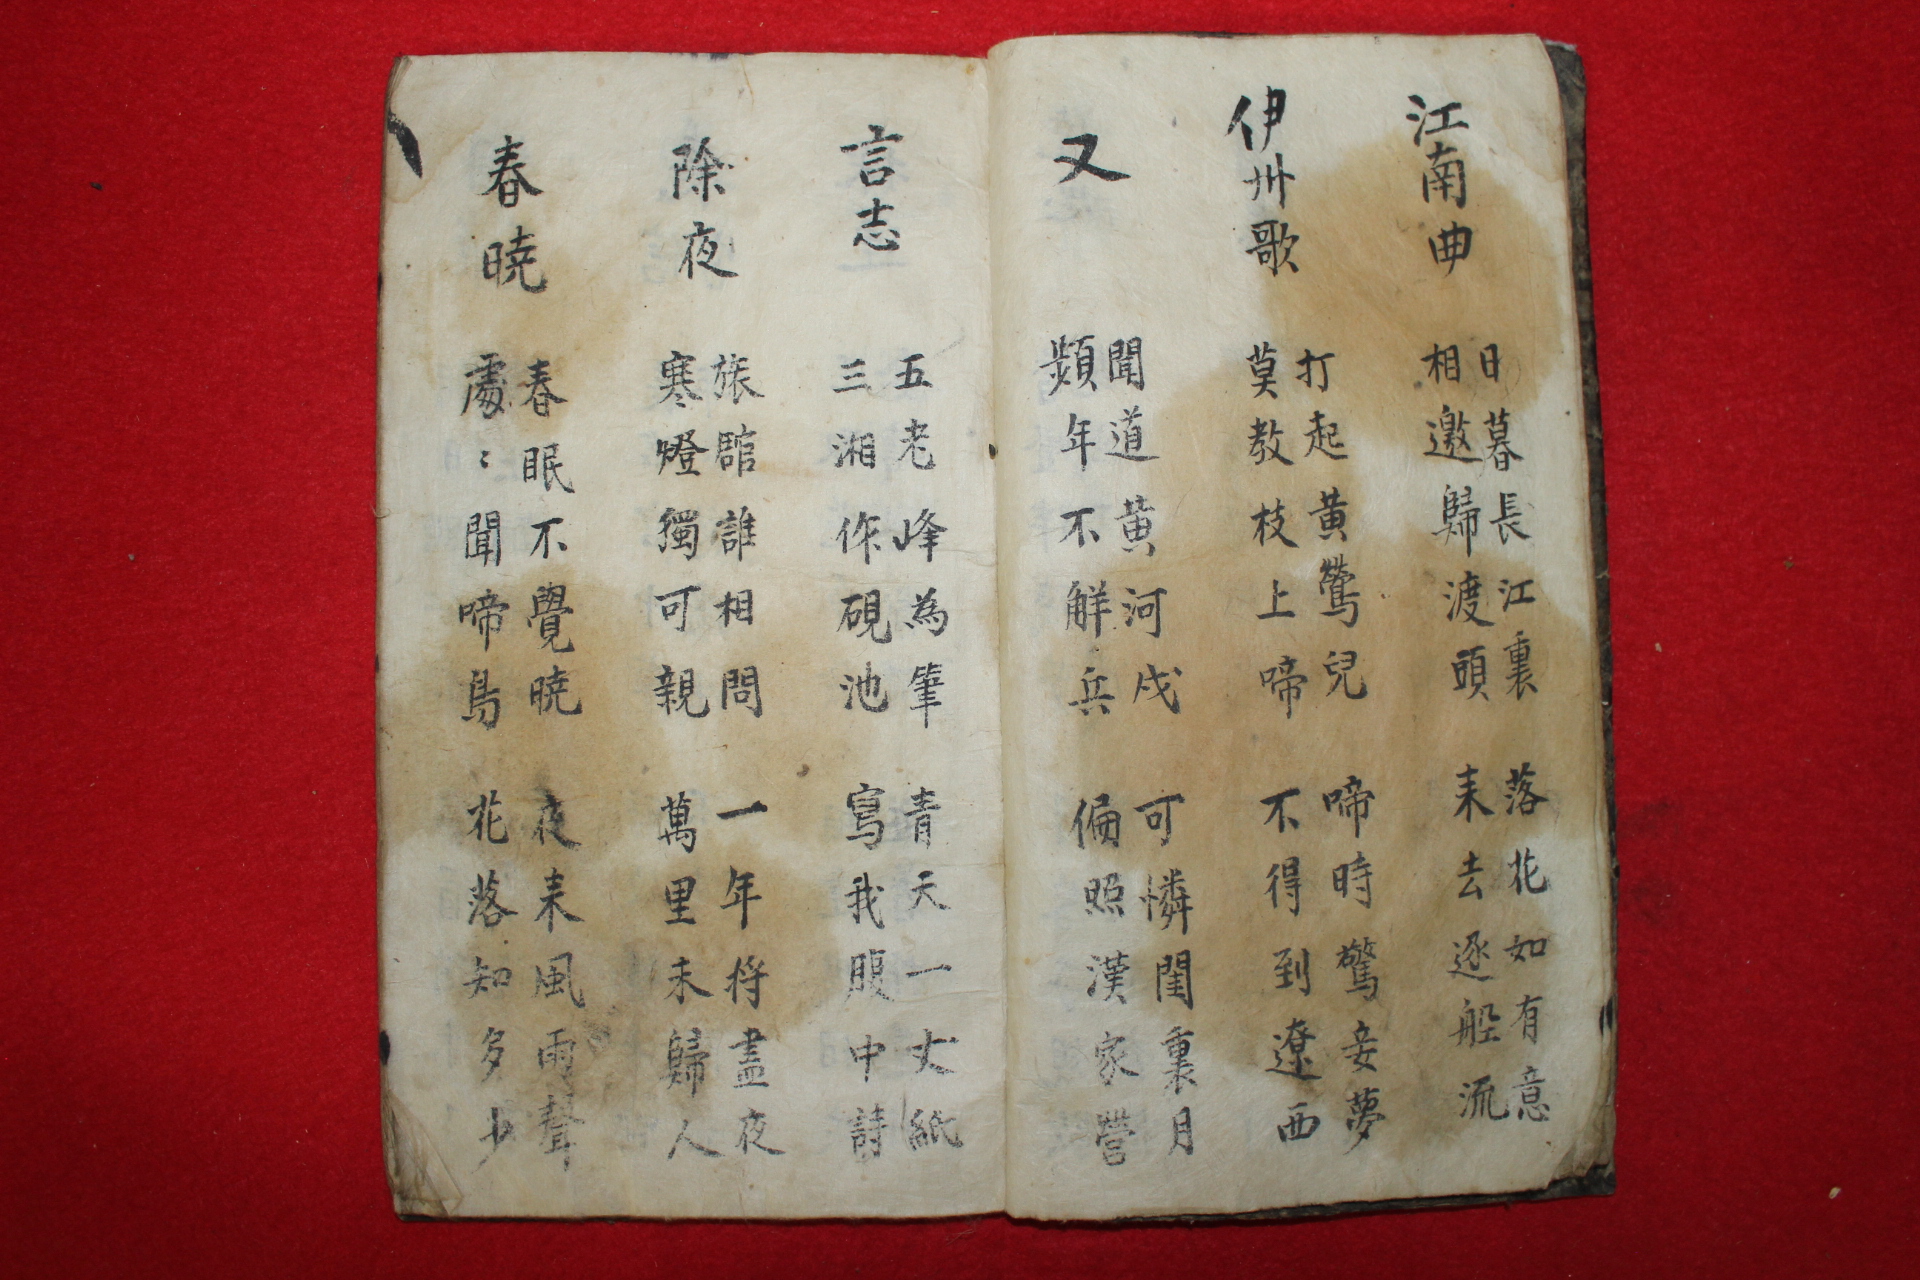 江南曲
日暮長江裏
相邀歸渡頭
落花如有意
来去逐舩流
伊州歌
打起黃鶯兒
莫教枝上啼
啼時驚妾夢
不得到遼西
又
聞道黃河戍
頻年不觧兵
可憐閨裏月
偏照漢家營
言志
五老峰為筆
三湘作硯池
青天一丈紙
寫我腹中詩
除夜
旅館誰相問
寒燈獨可親
一年將盡夜
萬里未歸人
春暁
春眠不覺暁
處〻聞啼鳥
夜来風雨聲
花落知多少